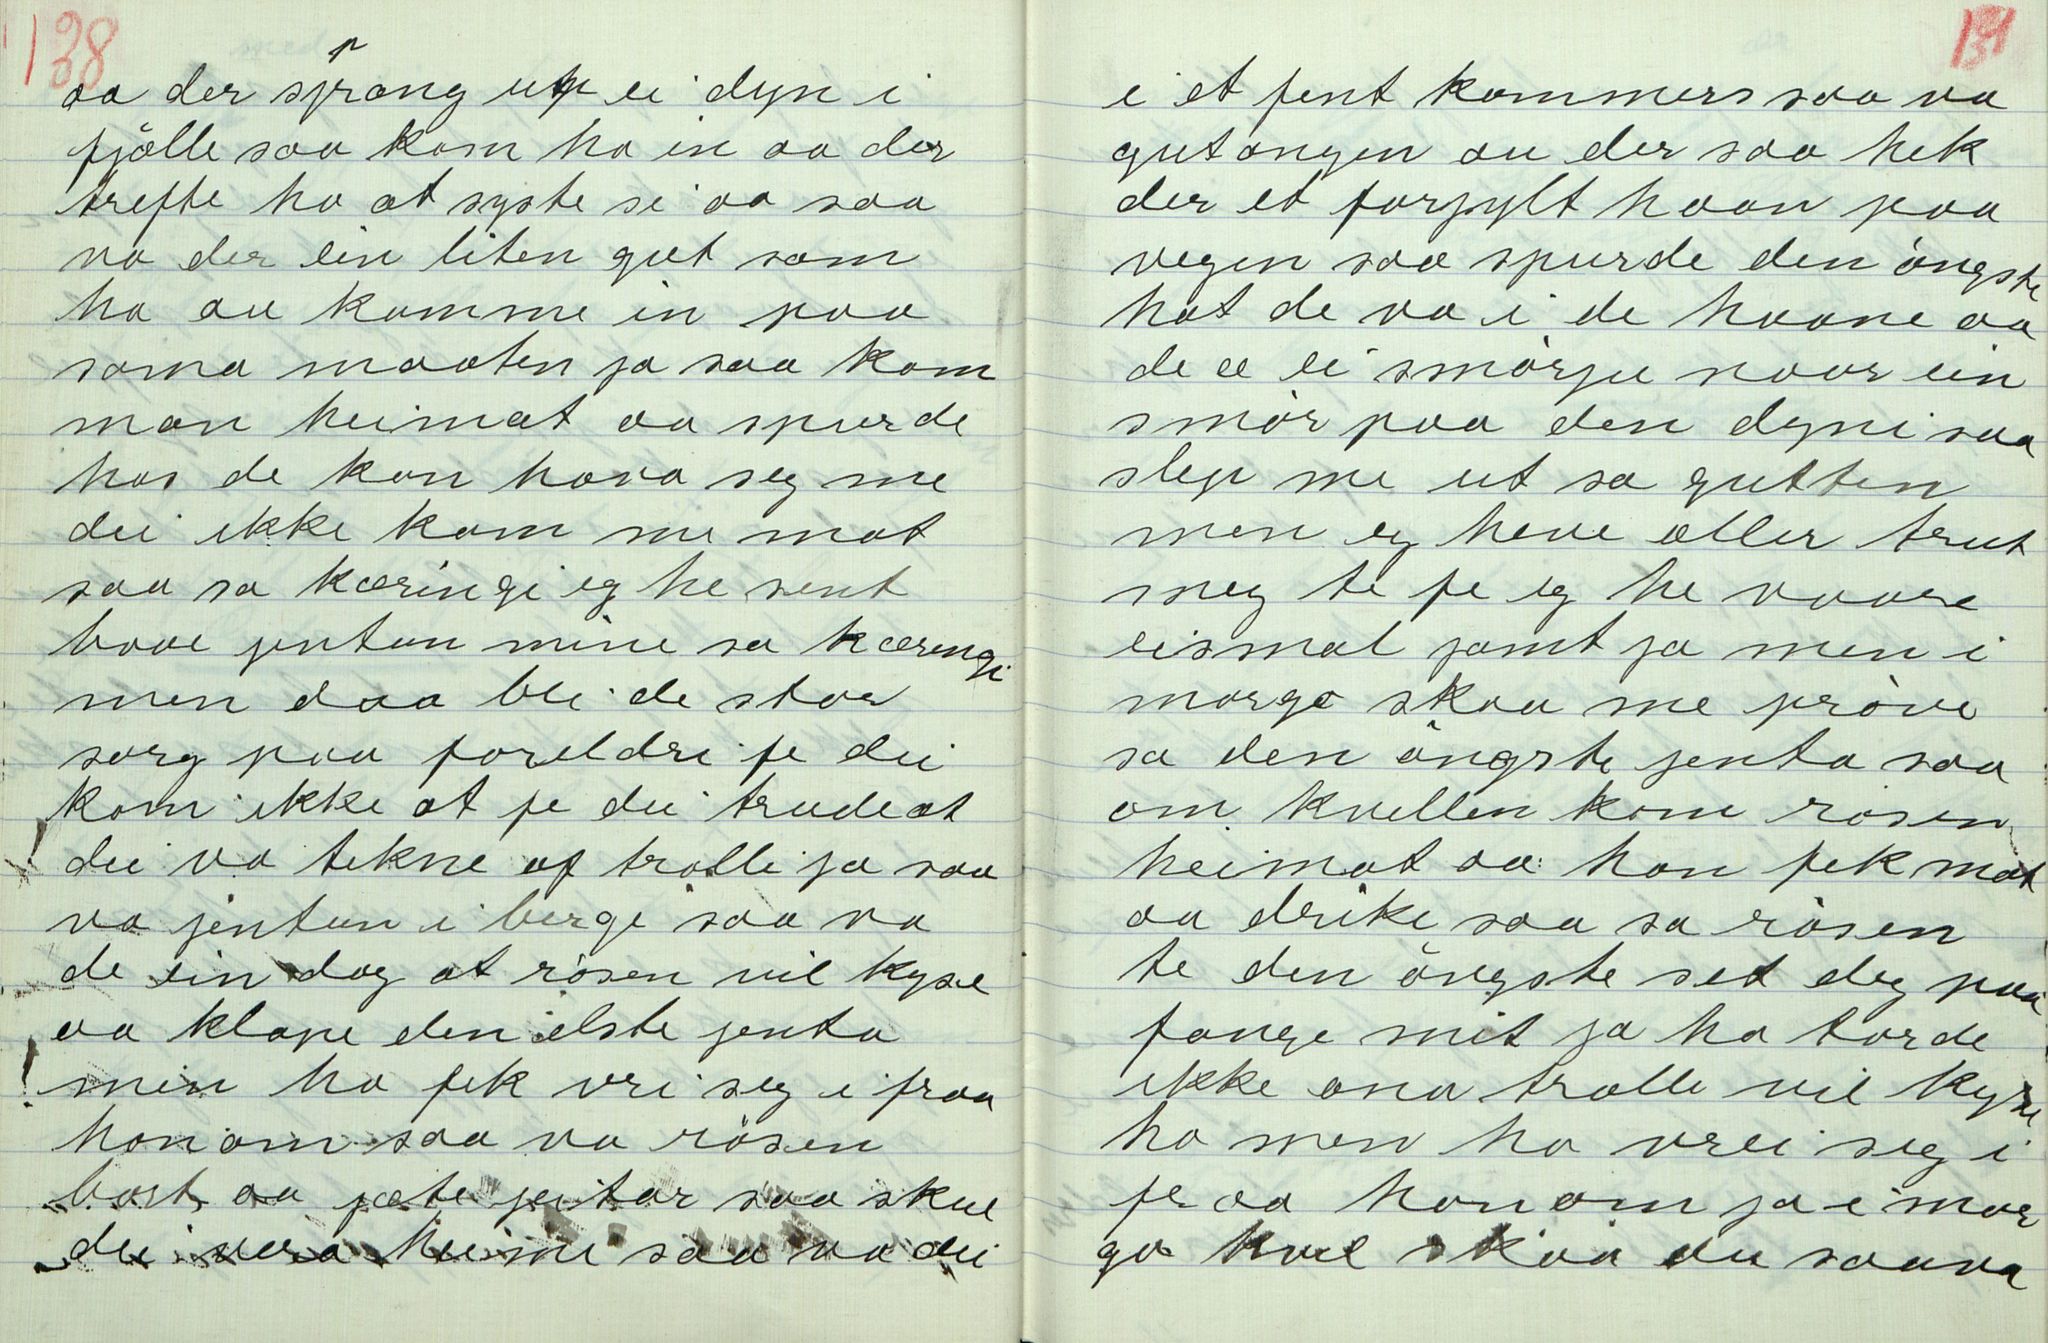 138
aa der sprang up ei dyn i
fjölle saa kom ho in aa der
trefte ho at syste si aa saa
va der ein liten gut som
ha au komme in paa
sama maaten ja saa kom
man heimat aa spurde
hos de kan hava seg me
dei ikke kom me mat
saa sa kæringi eg he sent
baae jentun mine sa kæringi
men daa blei de stor
sorg paa foreldre fe dei
kom ikke at fe dei trude at
dei va tekne af trolle ja saa
va jentun i berge saa va
de ein dag at risen vil kyse
aa klape den elste jenta
men ho fek vri seg i fraa
honom saa va risen
bort aa jæte jeitar saa skul
dei vera heime saa va dei
131
i et fent kammers saa va
gutongen au der saa hek
der et forfylt haan paa
vegen saa spurde den öngste
hot de va i de haane aa
de æ ei smörju naar ein
smör paa den dyni saa
slep me ut sa gutten
men eg heve aller trut
meg te fe eg he vaare
eismal jamt ja men i
morgo skaa me pröve
sa den öngste jenta saa
om kvellen kom risen
heimat aa han fek mat
aa drike saa sa risen
te den öngste set deg paa
fange mit ja ho torde
ikke ana trolle vil kyse
ho men ho vrei seg i
fraa honom ja i mor
go kvel skaa du saava